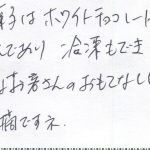 菓子は ホワイトチョコレート
んであり 冷凍もでき
はお彦さんのおもてなしに
宿ですネ